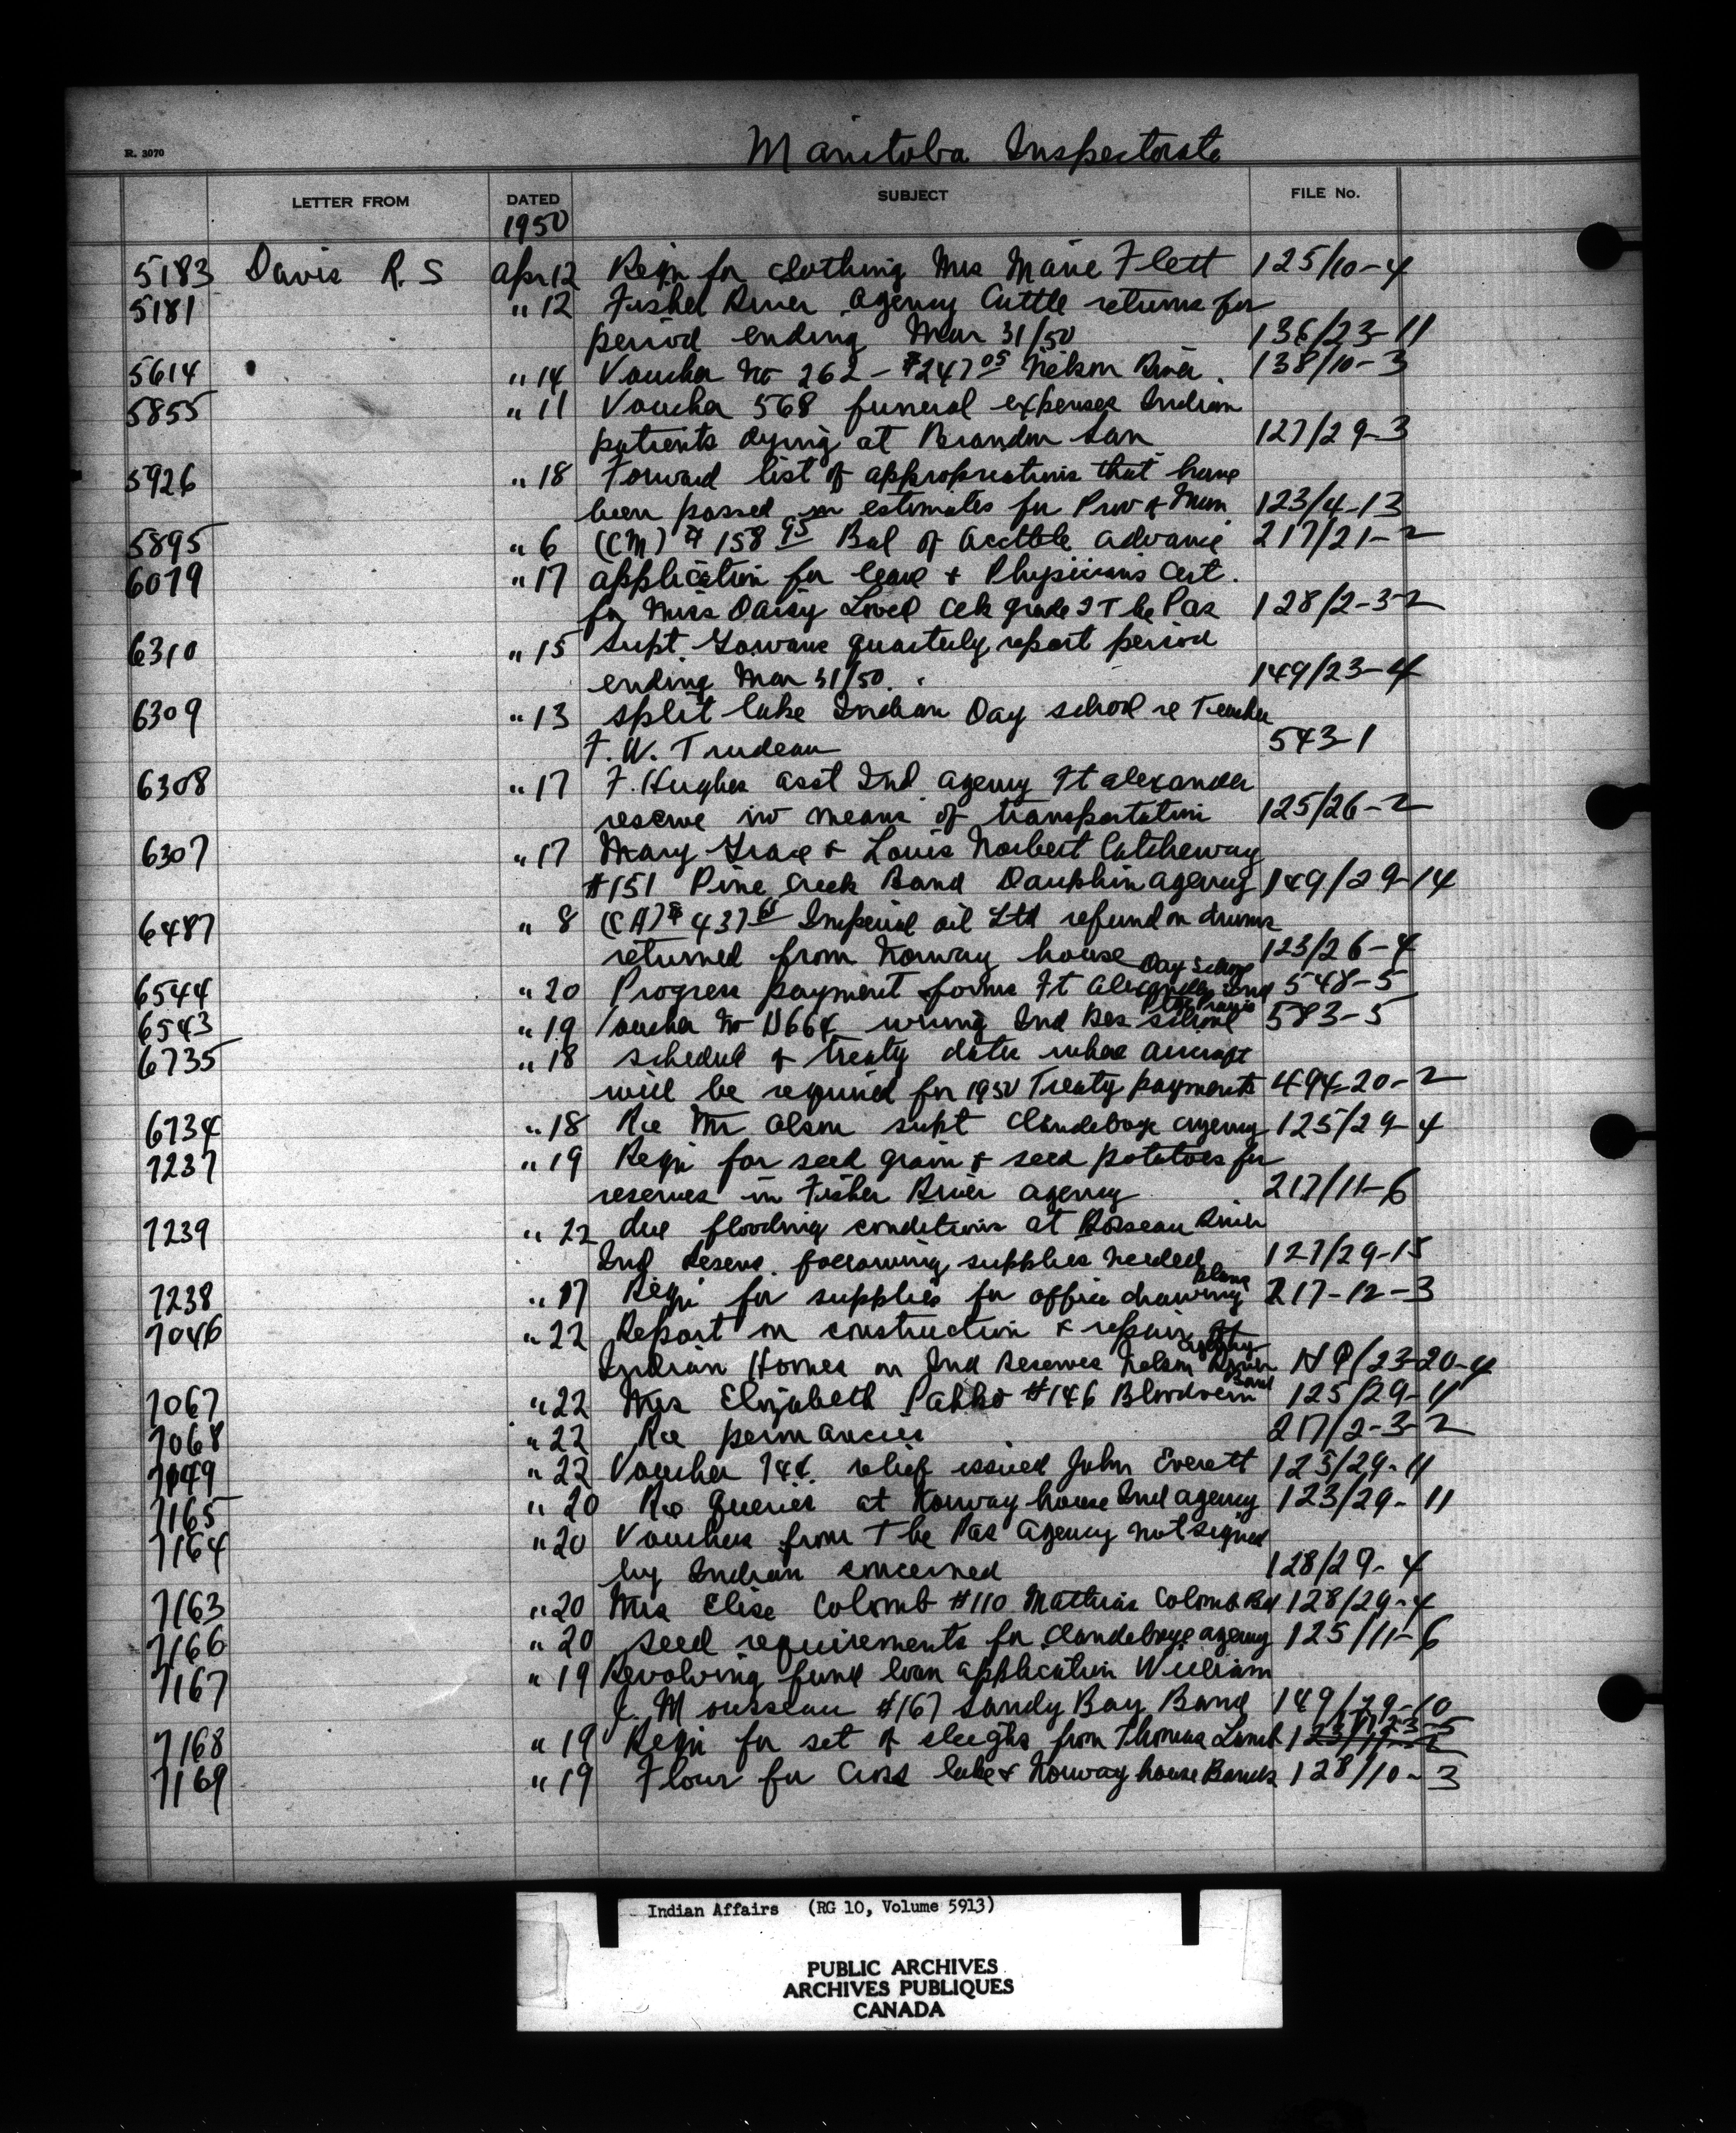 Manitoba Inspectorate
R. 3070
LETTER FROM DATED SUBJECT FILE No.
1950
5183 Davis R. S Apr 12 Reqn for clothing Mrs Marie Flett 125/10-4
5181 " 12 Fisher River Agency Cattle returns for
period ending Mar 31/50 136/23-11
5614 " 14 Voucher No 262 - $247 05 Nelson River. 138/10-3
5855 " 11 Voucher 568 funeral expenses Indian
patients dying at Brandon San 127/29-3
5926 " 18 Forward list of appropriations that have
been passed in estimates for Prov & Mun 123/4-13
5895 " 6 (CM) $ 158 95 Bal of advance 217/21-2
6079 " 17 application for leave & Physicians Cert.
for Miss Daisy Clk grade 2 The Pas 128/2-3-2
6310 " 15 Supt. Gowans quarterly report period
ending Mar 31/50. 149/23-4
6309 " 13 split lake Indian Day school re Teacher
F. W. Trudeau 543-1
6308 " 17 F. Hughes asst Ind. agency Ft alexander
reserve no means of transportation 125/26-2
6307 " 17 Mary Grace & Louis Norbert Catcheway
#151 Pine Creek Band Dauphin agency 149/29-14
6487 " 8 (CA) $ 437 Imperial oil Ltd refund on drums
returned from Norway house 123/26-4
6544 " 20 Progress payment forms Ft Alexander Ind Day School 548-5
6543 " 19 Voucher No wiring Ind Res school 583-5
6735 " 18 schedule of treaty dates when aircraft
will be required for 1950 Treaty payments 494-20-2
6734 " 18 Re Mr Olson supt Clandeboye agency 125/29-4
7237 " 19 Reqn for seed grain & seed potatoes for
reserves in Fisher River agency 217/11-6
7239 " 22 due flooding conditions at Roseau River
Ind Reserve. following supplies needed 127/29-15
7238 " 17 Reqn for supplies for office drawing plans 217-12-3
7046 " 22 Report on construction & repair of
Indian Homes on Ind Reserves Nelson River Agency 23-20-4
7067 " 22 Mrs Elizabeth #146 Bloodvein Band 125/29-11
7068 " 22 Re permancies 217/2-3-2
7049 " 22 Voucher relief issued John Everett 125/29-11
7165 " 20 Re queries at Norway house Ind agency 123/29-11
7164 " 20 Vouchers from The Pas Agency not signed
by Indian concerned 128/29-4
7163 " 20 Mrs Elise Colomb #110 Mathias Colomb Bd 128/29-4
7166 " 20 seed requirements for Clandeboye agency 125/11-6
7167 " 19 Revolving fund loan application William
J. Mousseau #167 Sandy Bay Band 149/29-10
7168 " 19 Reqn for set of sleighs from Thomas Lamb
7169 " 19 Flour for Cross lake & Norway house Bands 128/10-3
Indian Affairs (RG 10, Volume 5913)
PUBLIC ARCHIVES
ARCHIVES PUBLIQUES
CANADA